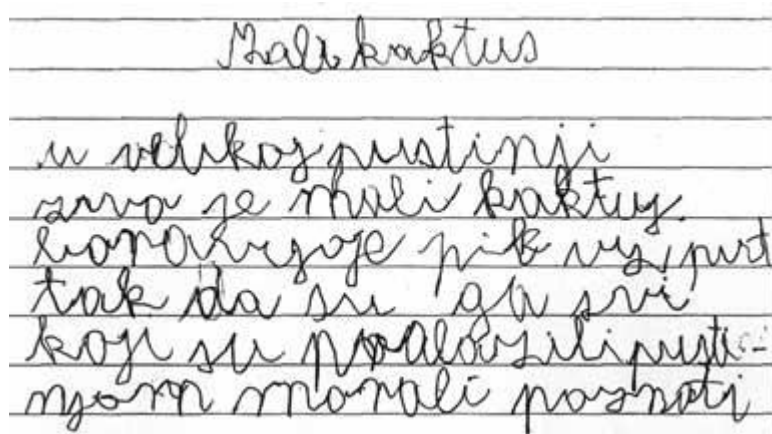 Mali kaktus
u velikoj pustinji
zivo je mali kaktus.
tak da su ga svi
koji su prolazili pusti-
njom morali poznati